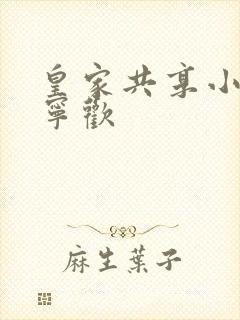 皇家共享小
寧歡
麻生葉子